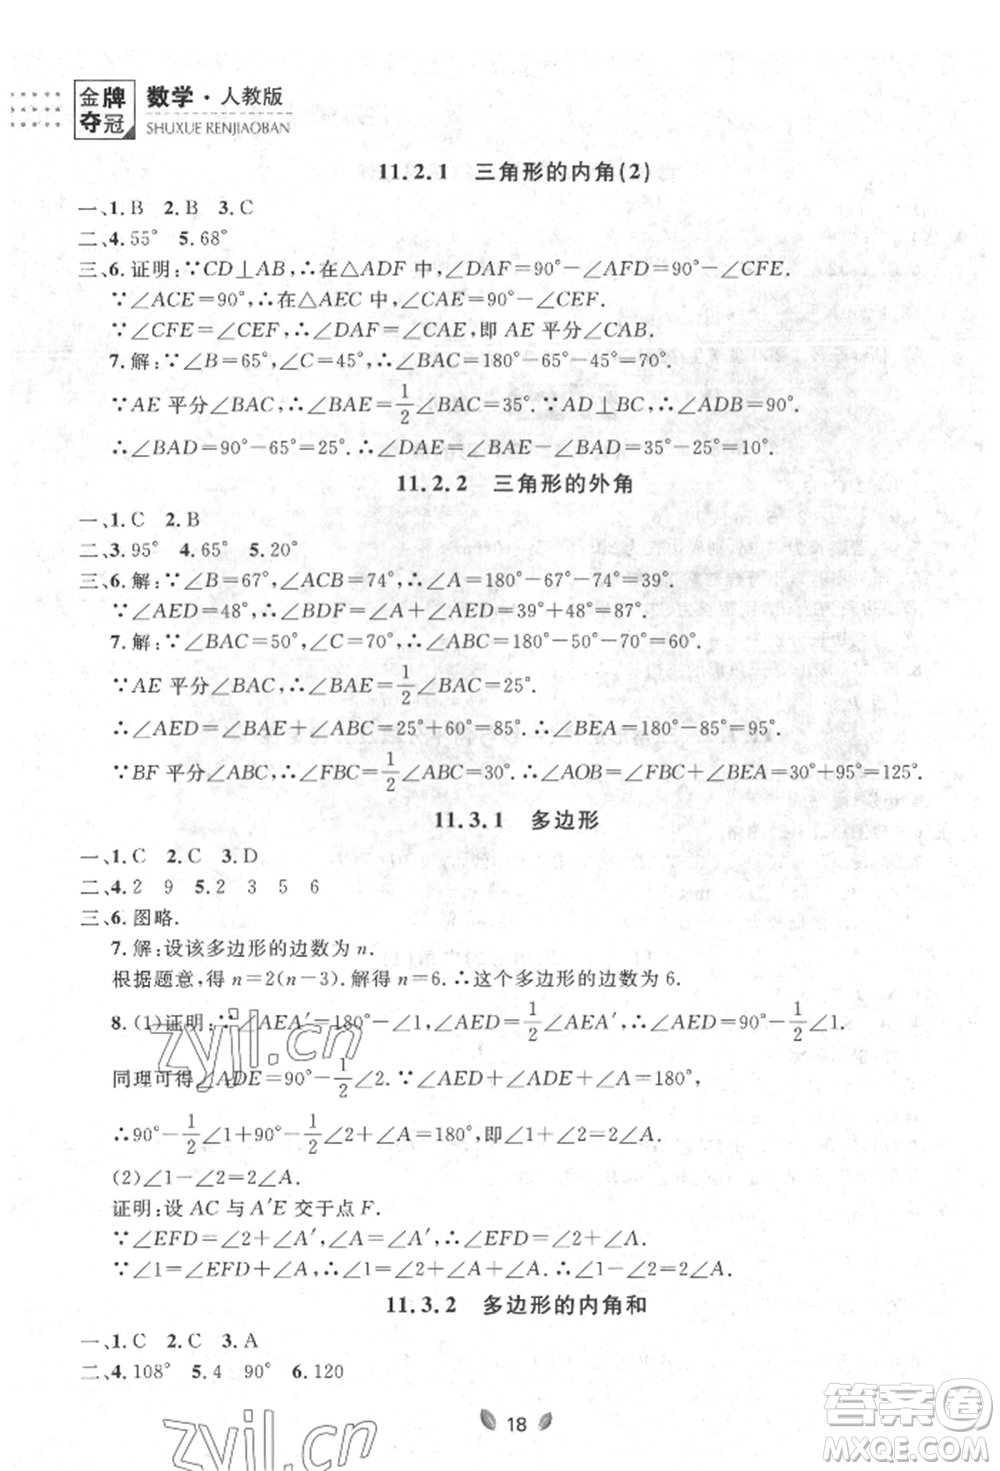 金牌夺冠 数学·人教版
SHUXUE RENJIAOBAN
11.2.1 三角形的内角(2)
一、1.B 2.B 3.C
二、4.55° 5.68°
三、6.证明:∵CD⊥AB,∴在△ADF中,∠DAF=90°-∠AFD=90°-∠CFE.
∵∠ACE=90°,∴在△AEC中,∠CAE=90°-∠CEF.
∵∠CFE=∠CEF,∴∠DAF=∠CAE,即AE平分∠CAB.
7.解:∵∠B=65°,∠C=45°,∴∠BAC=180°-65°-45°=70°.
∵AE平分∠BAC,∴∠BAE=1/2∠BAC=35°.∵AD⊥BC,∴∠ADB=90°.
∴∠BAD=90°-65°=25°.∴∠DAE=∠BAE-∠BAD=35°-25°=10°.
11.2.2 三角形的外角
一、1.C 2.B
二、3.95° 4.65° 5.20°
三、6.解:∵∠B=67°,∠ACB=74°,∴∠A=180°-67°-74°=39°.
∵∠AED=48°,∴∠BDF=∠A+∠AED=39°+48°=87°.
7.解:∵∠BAC=50°,∠C=70°,∴∠ABC=180°-50°-70°=60°.
∵AE平分∠BAC,∴∠BAE=1/2∠BAC=25°.
∴∠AED=∠BAE+∠ABC=25°+60°=85°.∴∠BEA=180°-85°=95°.
∵BF平分∠ABC,∴∠FBC=1/2∠ABC=30°.∴∠AOB=∠FBC+∠BEA=30°+95°=125°.
11.3.1 多边形
一、1.C 2.C 3.D
二、4.2 9 5.2 3 5 6
三、6.图略.
7.解:设该多边形的边数为n.
根据题意,得n=2(n-3).解得n=6.∴这个多边形的边数为6.
8.(1)证明:∵∠AEA′=180°-∠1,∴∠AED=1/2∠AEA′,∴∠AED=90°-1/2∠1.
同理可得∠ADE=90°-1/2∠2.∵∠AED+∠ADE+∠A=180°,
∴90°-1/2∠1+90°-1/2∠2+∠A=180°,即∠1+∠2=2∠A.
(2)∠1-∠2=2∠A.
证明:设AC与A′E交于点F.
∵∠EFD=∠2+∠A′,∴∠A=∠A′,∴∠EFD=∠2+∠A.
∵∠1=∠EFD+∠A,∴∠1=∠2+∠A+∠A=∠2+2∠A.∴∠1-∠2=2∠A.
11.3.2 多边形的内角和
一、1.C 2.C 3.A
二、4.108° 5.4 90° 6.120
18
zyjl.cn
zyjl.cn
答案圈
MXQE.COM